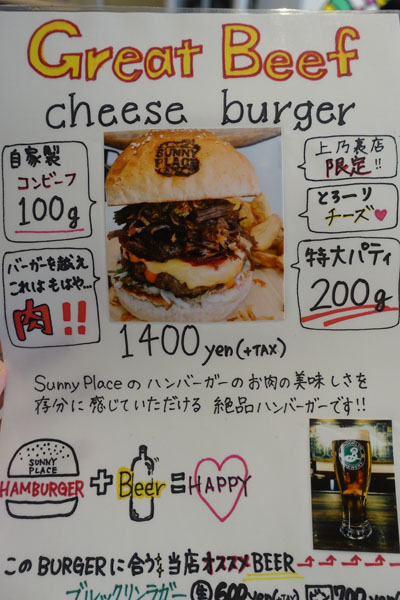 Great Beef
cheese burger
自家製
コンビーフ
100g
上乃裏店
限定!!
とろーり
チーズ
SUNNY
PLACE
バーガーを越え
これはもはや...
肉!!
特大パティ
200g
1400yen(+TAX)
Sunny Placeのハンバーガーのお肉の美味しさを
存分に感じていただける 絶品ハンバーガーです!!
SUNNY
PLACE
HAMBURGER + Beer = HAPPY
このBURGERに合う当店オススメBEER
ブルックリンラガー 生600yen(+TAX) ビン700yen(+